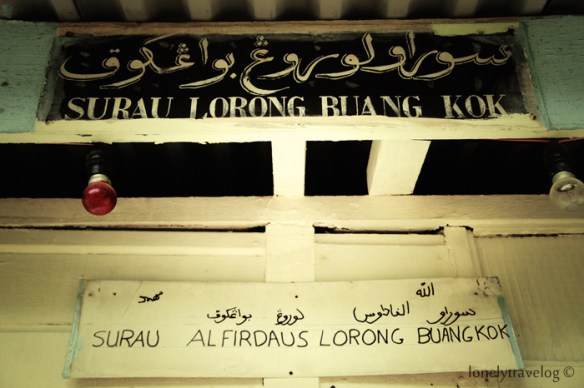 سوراو لوروڠ بواڠكوق
SURAU LORONG BUANG KOK
الله
محمد
سوراو الفاردوس لوروڠ بواڠكوق
SURAU ALFIRDAUS LORONG BUANGKOK
lonelytravelog ©